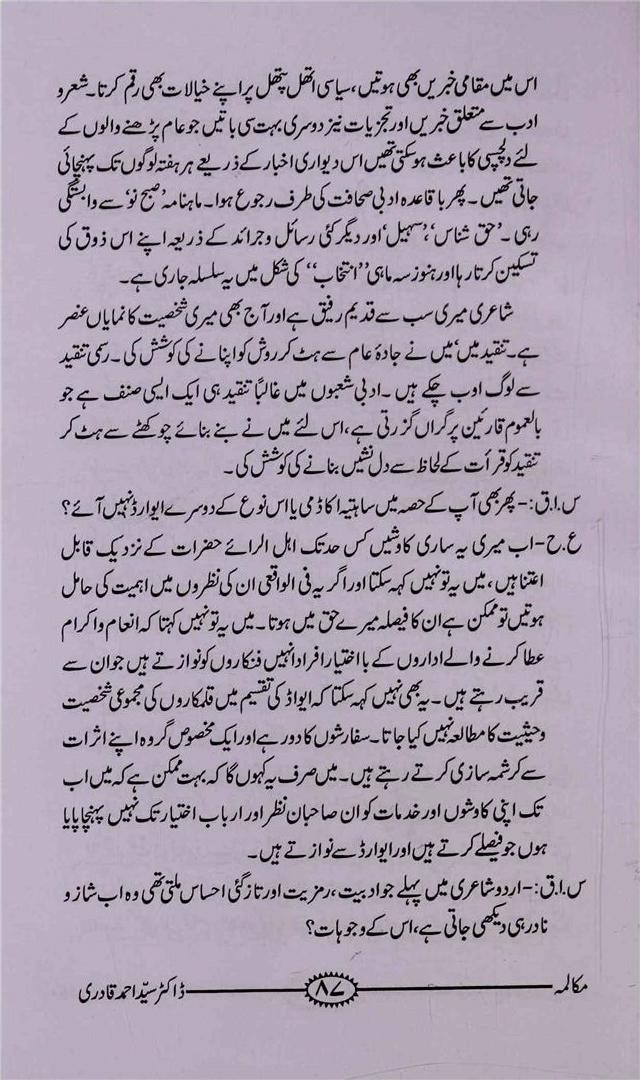 اس میں مقامی خبریں بھی ہوتیں، سیاسی اتھل پتھل پر اپنے خیالات بھی رقم کرتا۔ شعر و
ادب سے متعلق خبریں اور تجزیات نیز دوسری بہت سی باتیں جو عام پڑھنے والوں کے
لئے دلچسپی کا باعث ہو سکتی تھیں اس دیواری اخبار کے ذریعے ہر ہفتہ لوگوں تک پہنچائی
جاتی تھیں۔ پھر باقاعدہ ادبی صحافت کی طرف رجوع ہوا۔ ماہنامہ ’صبح نو‘ سے وابستگی
رہی۔ ’حق شناس‘، ’سہیل‘ اور دیگر کئی رسائل و جرائد کے ذریعہ اپنے اس ذوق کی
تسکین کرتا رہا اور ہنوز سہ ماہی ’’انتخاب‘‘ کی شکل میں یہ سلسلہ جاری ہے۔
شاعری میری سب سے قدیم رفیق ہے اور آج بھی میری شخصیت کا نمایاں عنصر
ہے۔ تنقید میں‘ میں نے جادۂ عام سے ہٹ کر روش کو اپنانے کی کوشش کی۔ رسمی تنقید
سے لوگ اوب چکے ہیں۔ ادبی شعبوں میں غالباً تنقید ہی ایک ایسی صنف ہے جو
بالعموم قارئین پر گراں گزرتی ہے، اس لئے میں نے بنے بنائے چوکھٹے سے ہٹ کر
تنقید کو قرأت کے لحاظ سے دل نشیں بنانے کی کوشش کی۔
س.ا.ق:- پھر بھی آپ کے حصہ میں ساہتیہ اکاڈمی یا اس نوع کے دوسرے ایوارڈ نہیں آئے؟
ع.ح- اب میری یہ ساری کاوشیں کس حد تک اہل الرائے حضرات کے نزدیک قابل
اعتنا ہیں، میں یہ تو نہیں کہہ سکتا اور اگر یہ فی الواقعی ان کی نظروں میں اہمیت کی حامل
ہوتیں تو ممکن ہے ان کا فیصلہ میرے حق میں ہوتا۔ میں یہ تو نہیں کہتا کہ انعام و اکرام
عطا کرنے والے اداروں کے با اختیار افراد انہیں فنکاروں کو نوازتے ہیں جو ان سے
قریب رہتے ہیں۔ یہ بھی نہیں کہہ سکتا کہ ایواڈ کی تقسیم میں قلمکاروں کی مجموعی شخصیت
و حیثیت کا مطالعہ نہیں کیا جاتا۔ سفارشوں کا دور ہے اور ایک مخصوص گروہ اپنے اثرات
سے کرشمہ سازی کرتے رہتے ہیں۔ میں صرف یہ کہوں گا کہ بہت ممکن ہے کہ میں اب
تک اپنی کاوشوں اور خدمات کو ان صاحبان نظر اور ارباب اختیار تک نہیں پہنچا پایا
ہوں جو فیصلے کرتے ہیں اور ایوارڈ سے نوازتے ہیں۔
س.ا.ق:- اردو شاعری میں پہلے جو ادبیت، رمزیت اور تازگئی احساس ملتی تھی وہ اب شاز و
نادر ہی دیکھی جاتی ہے، اس کے وجوہات؟
مکالمہ ۸۷ ڈاکٹر سیّد احمد قادری